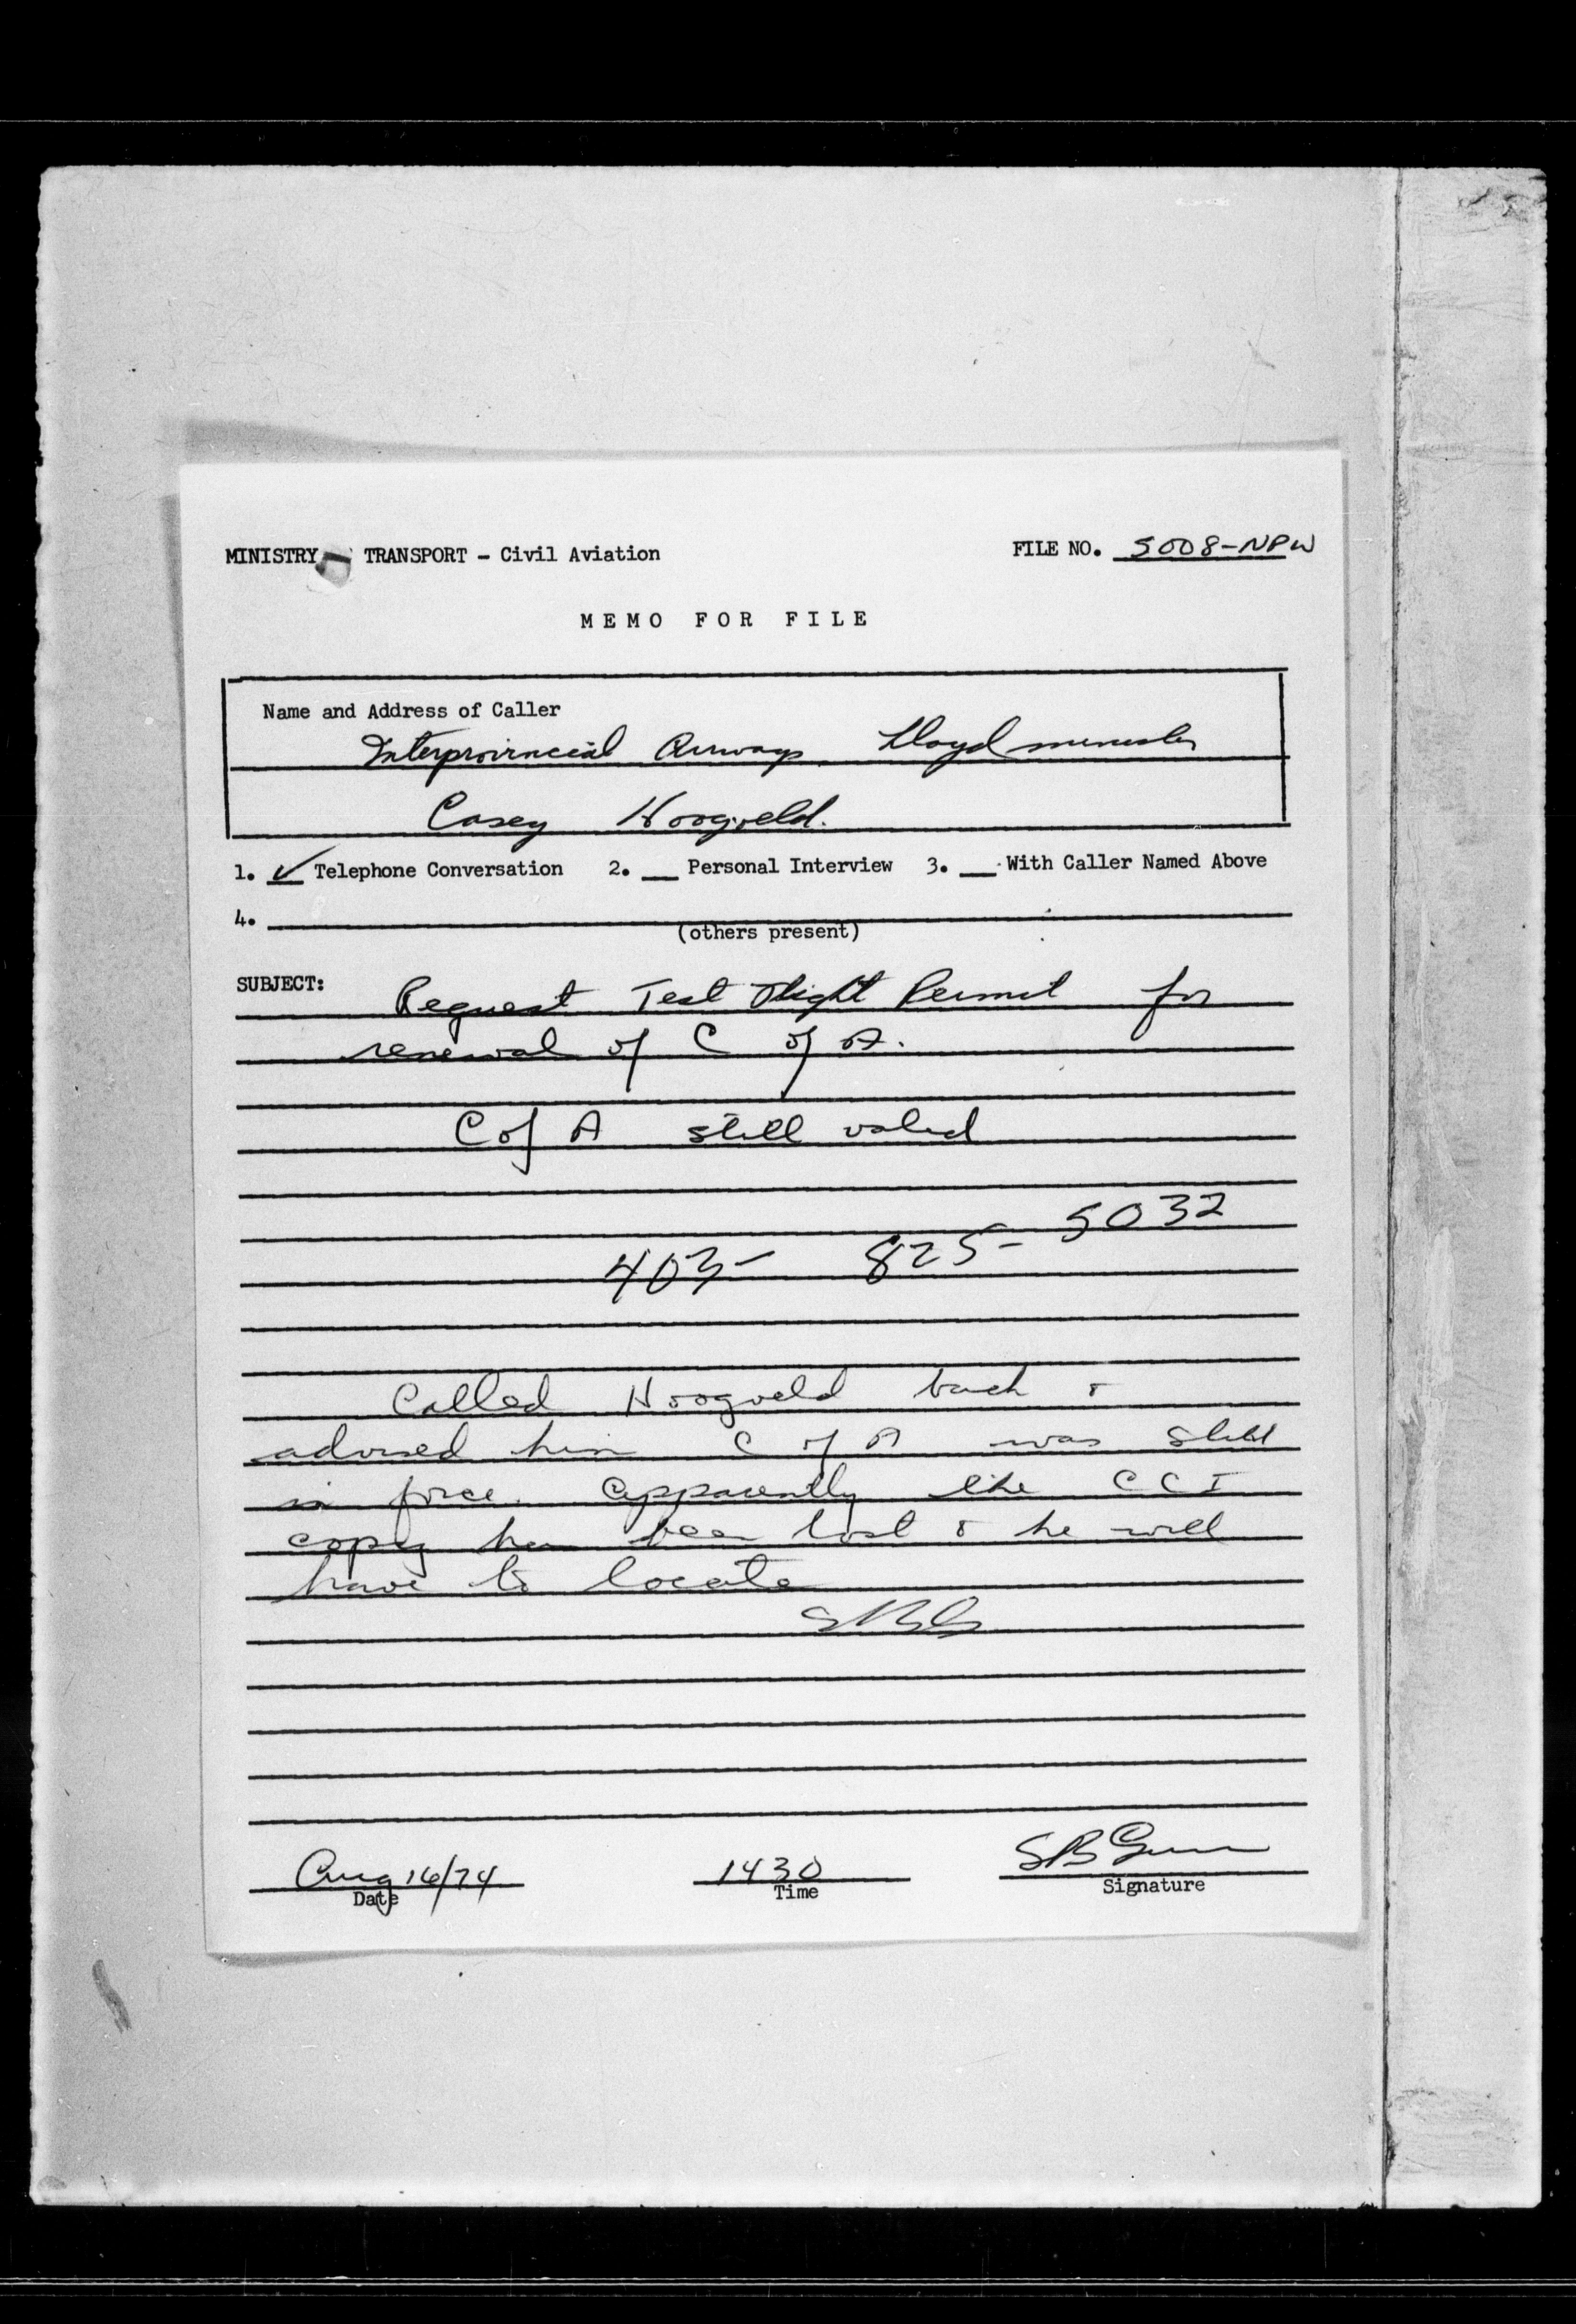 MINISTRY TRANSPORT - Civil Aviation FILE NO. 5008-NPW
MEMO FOR FILE
Name and Address of Caller
Interprovincial Airways, Lloydminster
Casey Hoogveld.
1. ✓ Telephone Conversation 2. __ Personal Interview 3. __ With Caller Named Above
4.
(others present)
SUBJECT: Request Test Flight Permit for
renewal of C of A.
C of A still valid
403- 825-5032
Called Hoogveld back &
advised him C of A was still
in force. Apparently the CCI
copy has been lost & he will
have to locate
SBG
Aug 16/74 1430 SB Gunn
Date Time Signature